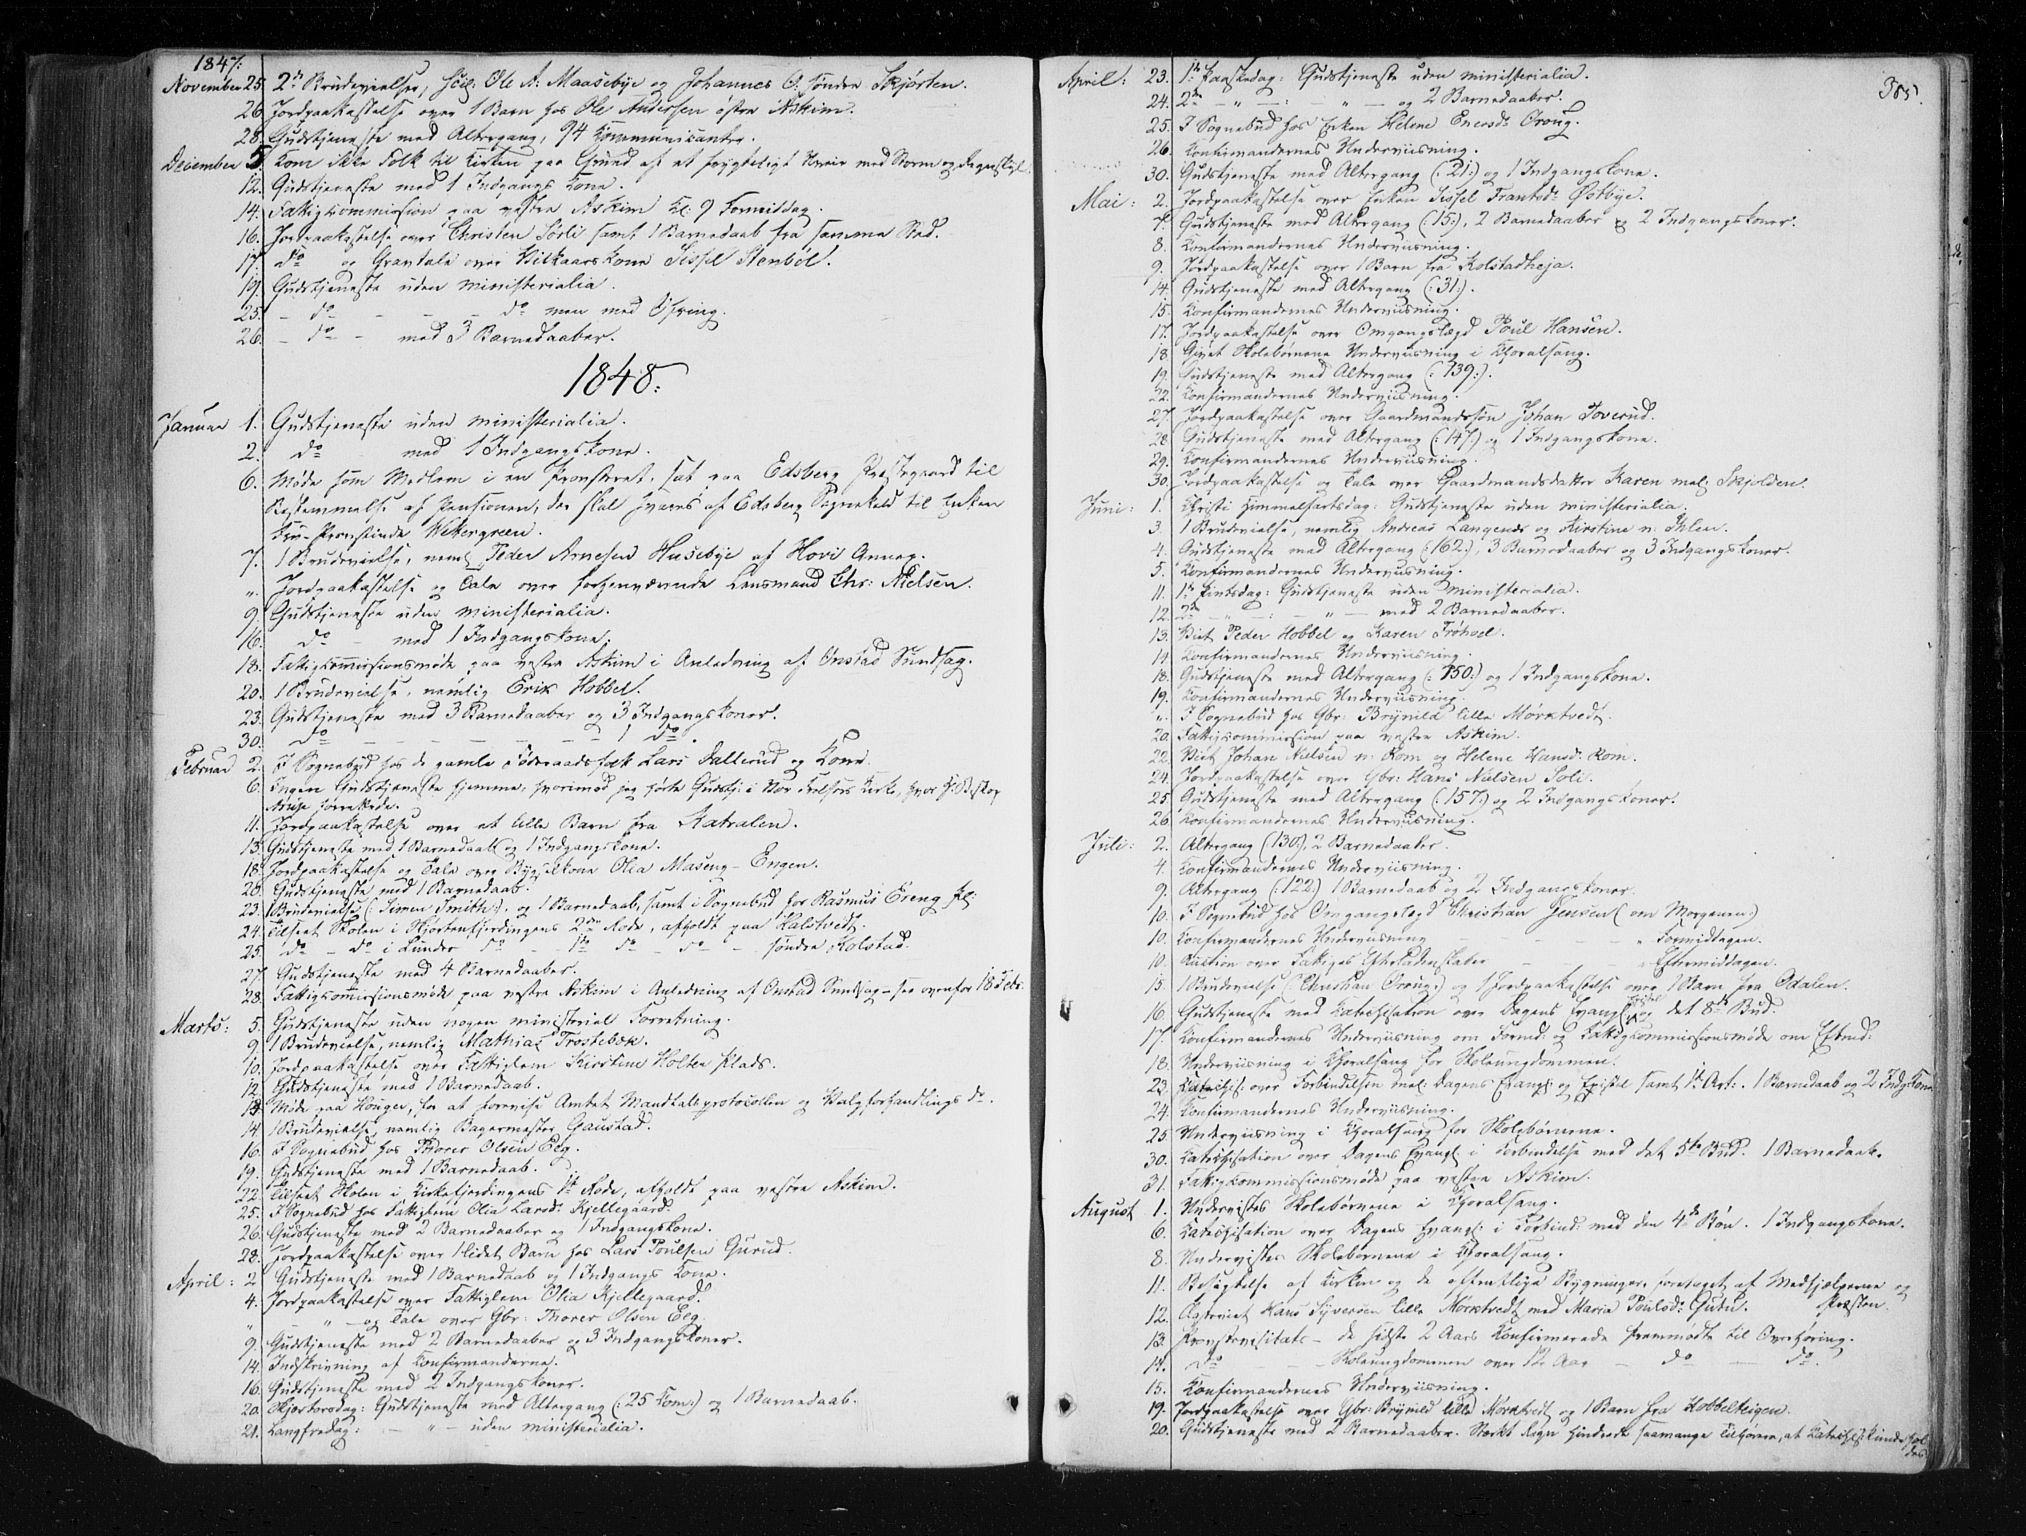 1847:
November 25. 2de Brudevielser, sc: Ole A: Maaseby og Johannes O. søndre Skjørten.
26. Jordpaakastelse over 1 Barn hos Ole Andersen østre Askim.
28. Gudstjeneste med Altergang, 94 Communicantre.
December 5. Kom ikke Folk til Kirken paa Grund af et frygteligt Uveir med Storm og Regnskyl.
12. Gudstjeneste med 1 Indgangs Kone.
14. Fattigcommission paa vestre Askim Kl: 9 Formiddag.
16. Jordpaakastelse over Christen Sørli samt 1 Barnedaab fra samme Sted.
17. do og Gravtale over Vilkaarskone Sissel Stenbøl.
19. Gudstjeneste uden ministerialia.
25. – do – – – do men med Offring.
26. – do – med 3 Barnedaaber.
1848:
Januar 1. Gudstjeneste uden ministerialia.
2. do med 1 Indgangskone.
6. Møde som Medlem i en Provsteret, sat paa Edsberg Præstegaard til
Bestemmelse af Pensionen, der skal svares af Edsberg Sognekald til Enken
Fru Provstinde Wetergreen.
7. 1 Brudevielse, neml. Peder Arnesen Husebye af Hovi Annex.
„ Jordpaakastelse og Tale over forhenværende Lensmand Chr: Nielsen.
9. Gudstjeneste uden ministerialia.
16. do – med 1 Indgangskone.
18. Fattigkommissionsmøde paa vestre Askim i Anledning af Onstad Sundsag.
20. 1 Brudevielse, nemlig Erik Hobbel.
23. Gudstjeneste med 3 Barnedaaber og 3 Indgangskoner.
30. do – – – – – 1 do.
Februar 2. I Sognebud hos de gamle Føderaadsfolk Lars Dallerud og Kone.
6. Ingen Gudstjeneste hjemme, hvorimod jeg hørte Gudstj: i Vor Frelsers Kirke, hvor H: Biskop
Arup forrettede.
11. Jordpaakastelse over et lille Barn fra Katralen.
13. Gudstjeneste med 1 Barnedaab og 1 Indgangskone.
18. Jordpaakastelse og Tale over Bygselkone Olia Maseng-Engen.
20. Gudstjeneste med 1 Barnedaab.
23. 1 Brudevielse (: Simen Smith:), og 1 Barnedaab, samt i Sognebud hos Rasmus Ereng
24. Tilseet Skolen i Skjørtenfjerdingens 2den Rode, afholdt paa Kalstvedt.
25. do – do i Lunder do – – 1ste do – do – søndre Kolstad.
27. Gudstjeneste med 4 Barnedaaber.
28. Fattigkommissionsmøde paa vestre Askim i Anledning af Onstad Sundsag – see ovenfor 18 Febr.
Marts: 5. Gudstjeneste uden nogen ministerial Forretning.
9. 1 Brudevielse, nemlig Mathias Trostebæk.
10. Jordpaakastelse over Fattiglem Kirstine Holter Plads.
12. Gudstjeneste med 1 Barnedaab.
13. Møde paa Houger, for at forevise Amtet Mandtalsprotocollen og Valgforhandlings do.
14. 1 Brudevielse, nemlig Bagermester Gaustad.
16. I Sognebud hos Thorer Olsen Eeg.
19. Gudstjeneste med 1 Barnedaab.
22. Tilseet Skolen i Kirkefjerdingens 1ste Rode, afholdt paa vestre Askim.
25. I Sognebud hos Fattiglem Olia Larsd: Kjellegaard.
26. Gudstjeneste med 2 Barnedaaber og 1 Indgangskone.
28. Jordpaakastelse over 1 lidet Barn hos Lars Poulsen Gurud.
April: 2. Gudstjeneste med 1 Barnedaab og 1 Indgangs Kone.
4. Jordpaakastelse over Fattiglem Olia Kjellegaard.
„ – „ – og Tale over Gbr: Thorer Olsen Eeg.
9. Gudstjeneste med 2 Barnedaaber og 3 Indgangskoner.
14. Indskrivning af Confirmanderne.
16. Gudstjeneste med 2 Indgangskoner.
20. Skjærtorsdag: Gudstjeneste med Altergang (: 25 Kom:) og 1 Barnedaab.
21. Langfredag: – „ – uden ministerialia.
385.
April: 23. 1ste Paaskedag: Gudstjeneste uden ministerialia.
24. 2den – „ – : – „ – og 2 Barnedaaber.
25. I Sognebud hos Enken Helene Enersd: Oroug.
26. Konfirmandernes Underviisning.
30. Gudstjeneste med Altergang (: 21:) og 1 Indgangskone.
Mai: 2. Jordpaakastelse over Enken Sissel Frantsd: Østbye.
7. Gudstjeneste med Altergang (: 15:), 2 Barnedaaber og 2 Indgangskoner.
8. Konfirmandernes Underviisning.
9. Jordpaakastelse over 1 Barn fra Kolstadheja.
14. Gudstjeneste med Altergang (: 31:).
15. Konfirmandernes Underviisning.
17. Jordpaakastelse over Omgangslægd Poul Hansen.
18. Givet Skolebørnene Underviisning i Choralsang.
19. Gudstjeneste med Altergang (: 139:).
22. Konfirmandernes Underviisning.
27. Jordpaakastelse over Gaardmandssøn Johan Toverud.
28. Gudstjeneste med Altergang (: 147:) og 1 Indgangskone.
29. Konfirmandernes Underviisning.
30. Jordpaakastelse og Tale over Gaardmandsdatter Karen mel: Skjolden.
Juni: 1. Christi Himmelfartsdag: Gudstjeneste uden ministerialia.
3. 1 Brudevielse, nemlig Andreas Langenæs og Kirstine n: Ihlen.
4. Gudstjeneste med Altergang (: 162:), 3 Barnedaaber og 3 Indgangskoner.
5. Konfirmandernes Underviisning.
11. 1ste Pintsdag: Gudstjeneste uden ministerialia.
12. 2den – „ – : – „ – med 2 Barnedaaber.
13. Viet Peder Hobbel og Karen Frøhoel.
14. Konfirmandernes Underviisning.
18. Gudstjeneste med Altergang (: 150:) og 1 Indgangskone.
19. Konfirmandernes Underviisning.
„. I Sognebud hos Gbr: Brynild lille Mørktvedt.
20. Fattigkommission paa vestre Askim.
22. Viet Johan Nielsen n: Rom og Helene Hansd: Rom.
24. Jordpaakastelse over Gbr: Hans Nielsen Soli.
25. Gudstjeneste med Altergang (: 157:) og 2 Indgangskoner.
26. Konfirmandernes Underviisning.
Juli: 2. Altergang (130), 2 Barnedaaber.
4. Konfirmandernes Underviisning.
9. Altergang (: 122:) 1 Barnedaab og 2 Indgangskoner.
10. I Sognebud hos Omgangslægd Christian Jensen (om Morgenen)
10. Konfirmandernes Underviisning – – – – „ Formidtagen.
10. Auction over Fattiges Efterladenskaber – – – „ Eftermiddagen.
15. 1 Brudevielse (: Christian Oroug:) og 1 Jordpaakastelse over 1 Barn fra Odalen.
16. Gudstjeneste med Katechisation over Dagens Evangl: Epistel og det 8de Bud.
17. Konfirmandernes Underviisning om Formd: og Fattigkommissionsmøde om Eftmd:
18. Underviisning i Choralsang for Skoleungdommen.
23. Katechis: over Forbindelsen mel: Dagens Evangl: og Epistel samt 1ste Art:. 1 Barnedaab og 2 Indg: Kone
24. Konfirmandernes Underviisning.
25. Underviisning i Choralsang for Skolebørnene.
30. Katechisation over Dagens Evangl: i Forbindelse med det 5te Bud. 1 Barnedaab.
31. Fattigkommissionsmøde paa vestre Askim.
August 1. Undervistes Skolebørnene i Choralsang.
6. Katechisation over Dagens Evangl: i Forbind: med den 4de Bøn. 1 Indgangskone.
8. Undervistes Skolebørnene i Choralsang.
11. Besigtelse af Kirken og de offentlige Bygninger, foretaget af Medhjælperne og
Præsten.
12. Egteviet Hans Syversen lille Mørktvedt med Maria Poulsd: Gutu.
13. Provstevisitats – de sidste 2 Aars Konfirmerede fremmødte til Overhøring.
14. do – – – Skoleungdommen over 12 Aar – do – do.
15. Konfirmandernes Underviisning.
19. Jordpaakastelse over Gbr: Brynild lille Mørktvedt og 1 Barn fra Hobbelteigen.
20. Gudstjeneste med 2 Barnedaaber. Stærkt Regn hindrede saamange Tilhørere, at Katechis: kunde hol-
des